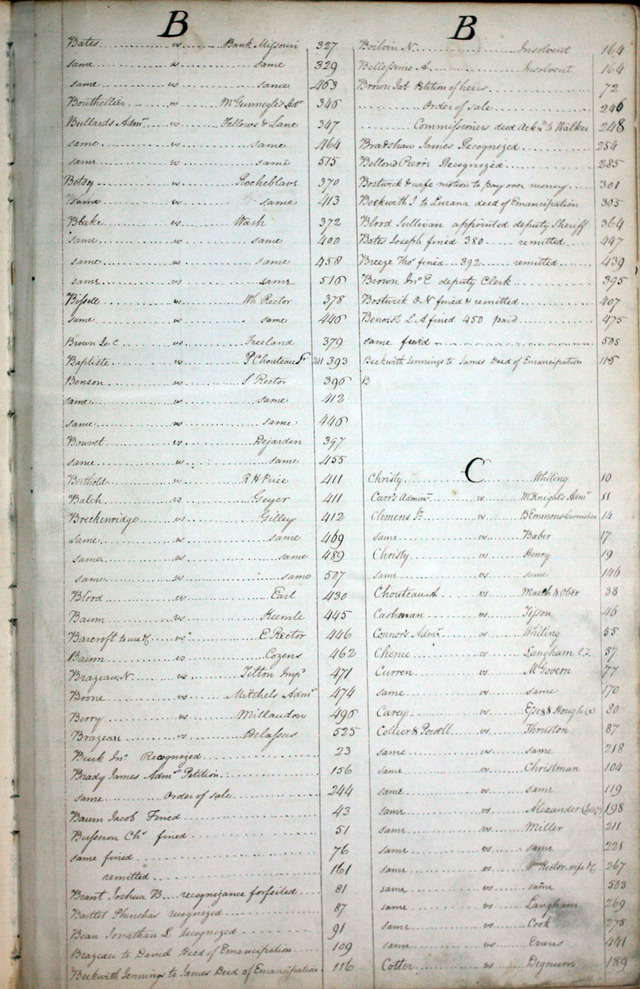 B
Bates vs Bank Missouri 327
same vs same 329
same vs same 463
Bouthellier vs 346
Bullards Admr. vs Fellows & Lane 347
same vs same 464
same vs same 515
Betsy vs Rocheblave 370
same vs same 413
Blake vs Wash 372
same vs same 400
same vs same 458
same vs same 516
Bissell vs Wm Rector 378
same vs same 446
Brown Jo C vs Treeland 379
Baptiste vs P. Chouteau Jr 241 393
Benson vs S Rector 396
same vs same 412
same vs same 446
Bouvet vs Dejardin 397
same vs same 455
Berthold vs R H Price 411
Balch vs Geyer 411
Breckenridge vs Gilley 412
same vs same 469
same vs same 489
same vs same 507
Blood vs Earl 430
Baum vs 445
Barcroft to use &c vs E Rector 446
Baum vs Cozens 462
Brazeau N. vs Tetton Impd 471
Boone vs Mitchels Admr 474
Berry vs Millaudon 496
Brazeau vs Delassus 525
Buik Jno Recognized 23
Brady James Admr Petition 156
same Order of sale 244
Baum Jacob Fined 43
Busseron Chs fined 51
same fined 76
remitted 161
Brant Joshua B. recognizance forfeited 81
Bartlet Phinehas recognized 87
Beau Jonathan L recognized 91
Brazeau to David Deed of Emancipation 109
Beckwith Jennings to James Deed of Emancipation 116
B
Boilvin N. Insolvent 164
Bellessime A. Insolvent 164
Brown Jos Petition of heirs 72
Order of sale 246
Commissioners deed Acknd to Walker 248
Bradshaw James Recognized 254
Bollond Parin Recognized 285
Bostwick & wife motion to pay over money 301
Beckwith J to Lurana deed of Emancipation 305
Blood Sullivan appointed deputy Sheriff 364
Bates Joseph fined 380 remitted 447
Breeze Thos fined 392 remitted 439
Brown Jno E deputy Clerk 395
Bostwick O. N fined & remitted 407
Benoist L A fined 450 paid 475
same fined 505
Beckwith Jennings to James Deed of Emancipation 115
B
C
Christy vs Whiting 10
Carr's Admr. vs McKnight's Admr 11
Clemens Jr. vs B Emmons Garnishee 14
same vs Baber 17
Christy vs Henry 19
same vs same 146
Chouteau A vs March & Ober 38
Cashman vs Tesson 46
Connor's Admr. vs Whiting 55
Chenie vs Langham 57
Curren vs McGovern 77
same vs same 170
Carey vs 80
Collier & Powell vs Thruston 87
same vs same 218
same vs Christman 104
same vs same 119
same vs Alexander 198
same vs Miller 211
same vs same 221
same vs Wm Rector wife &c 267
same vs same 503
same vs Langham 269
same vs Cook 275
same vs Evans 441
Cotter vs Dignum 189